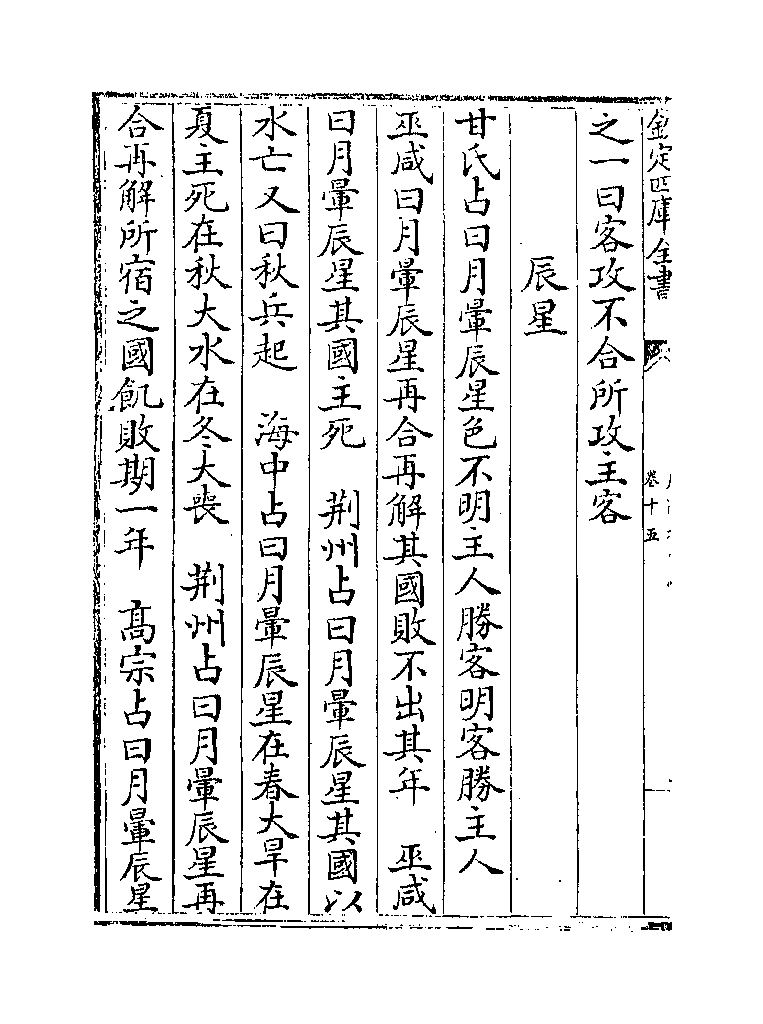 欽定四庫全書
卷十五
之一曰客攻不合所攻主客
辰星
甘氏占曰月暈辰星色不明主人勝客明客勝主人
巫咸曰月暈辰星再合再解其國敗不出其年　巫咸
曰月暈辰星其國主死　荆州占曰月暈辰星其國以
水亡又曰秋兵起　海中占曰月暈辰星在春大旱在
夏主死在秋大水在冬大喪　荆州占曰月暈辰星再
合再解所宿之國飢敗期一年　髙宗占曰月暈辰星